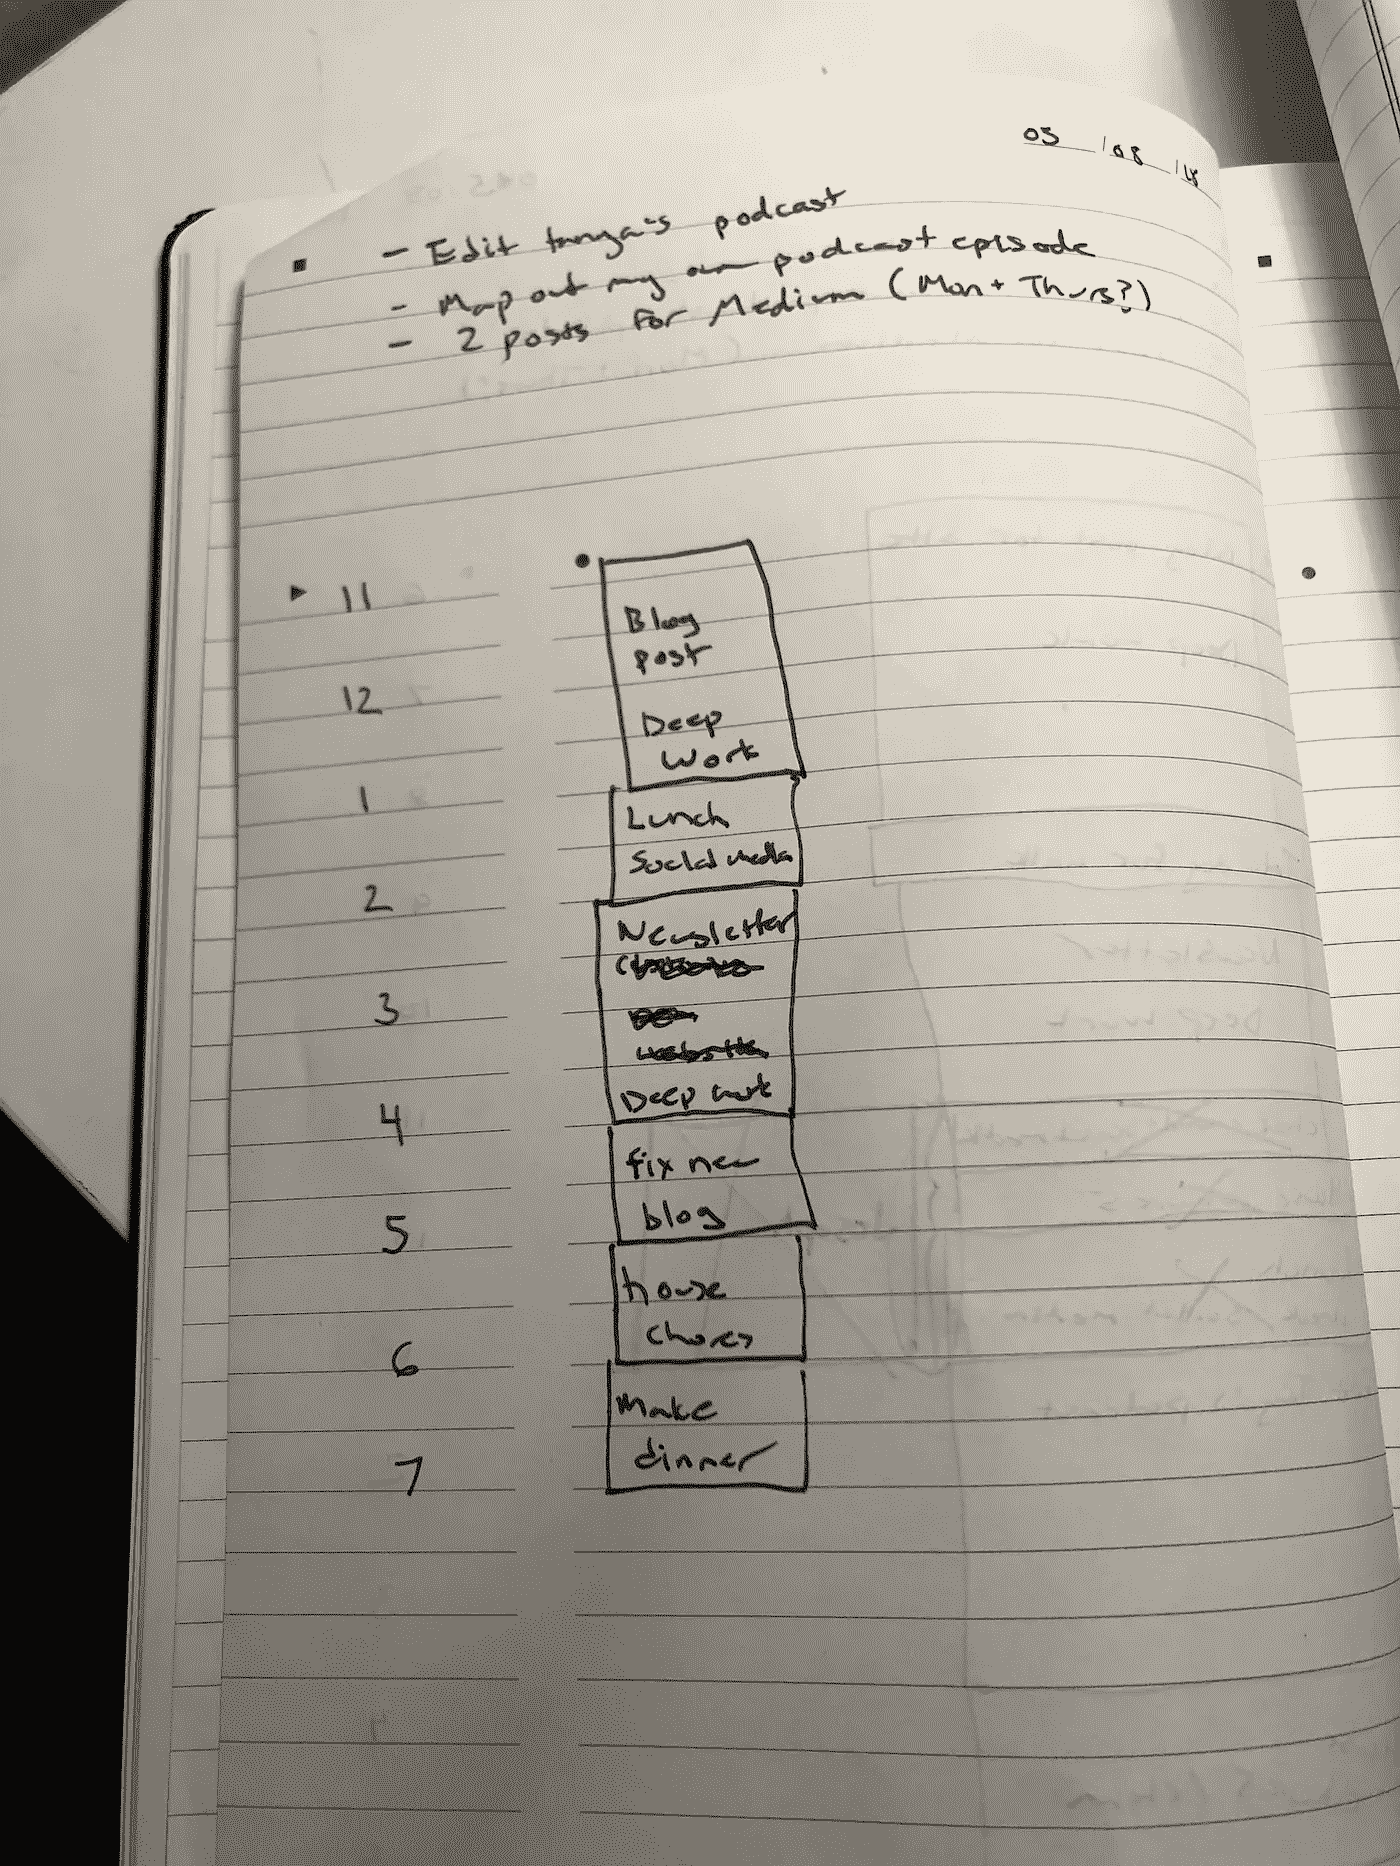 05 /08 /18
- Edit tanya's podcast
- Map out my own podcast episode
- 2 posts for Medium (Mon + Thurs?)
11
Blog
post
12
Deep
Work
1
Lunch
Social media
2
Newsletter
3
Deep work
4
fix new
blog
5
house
chores
6
Make
dinner
7